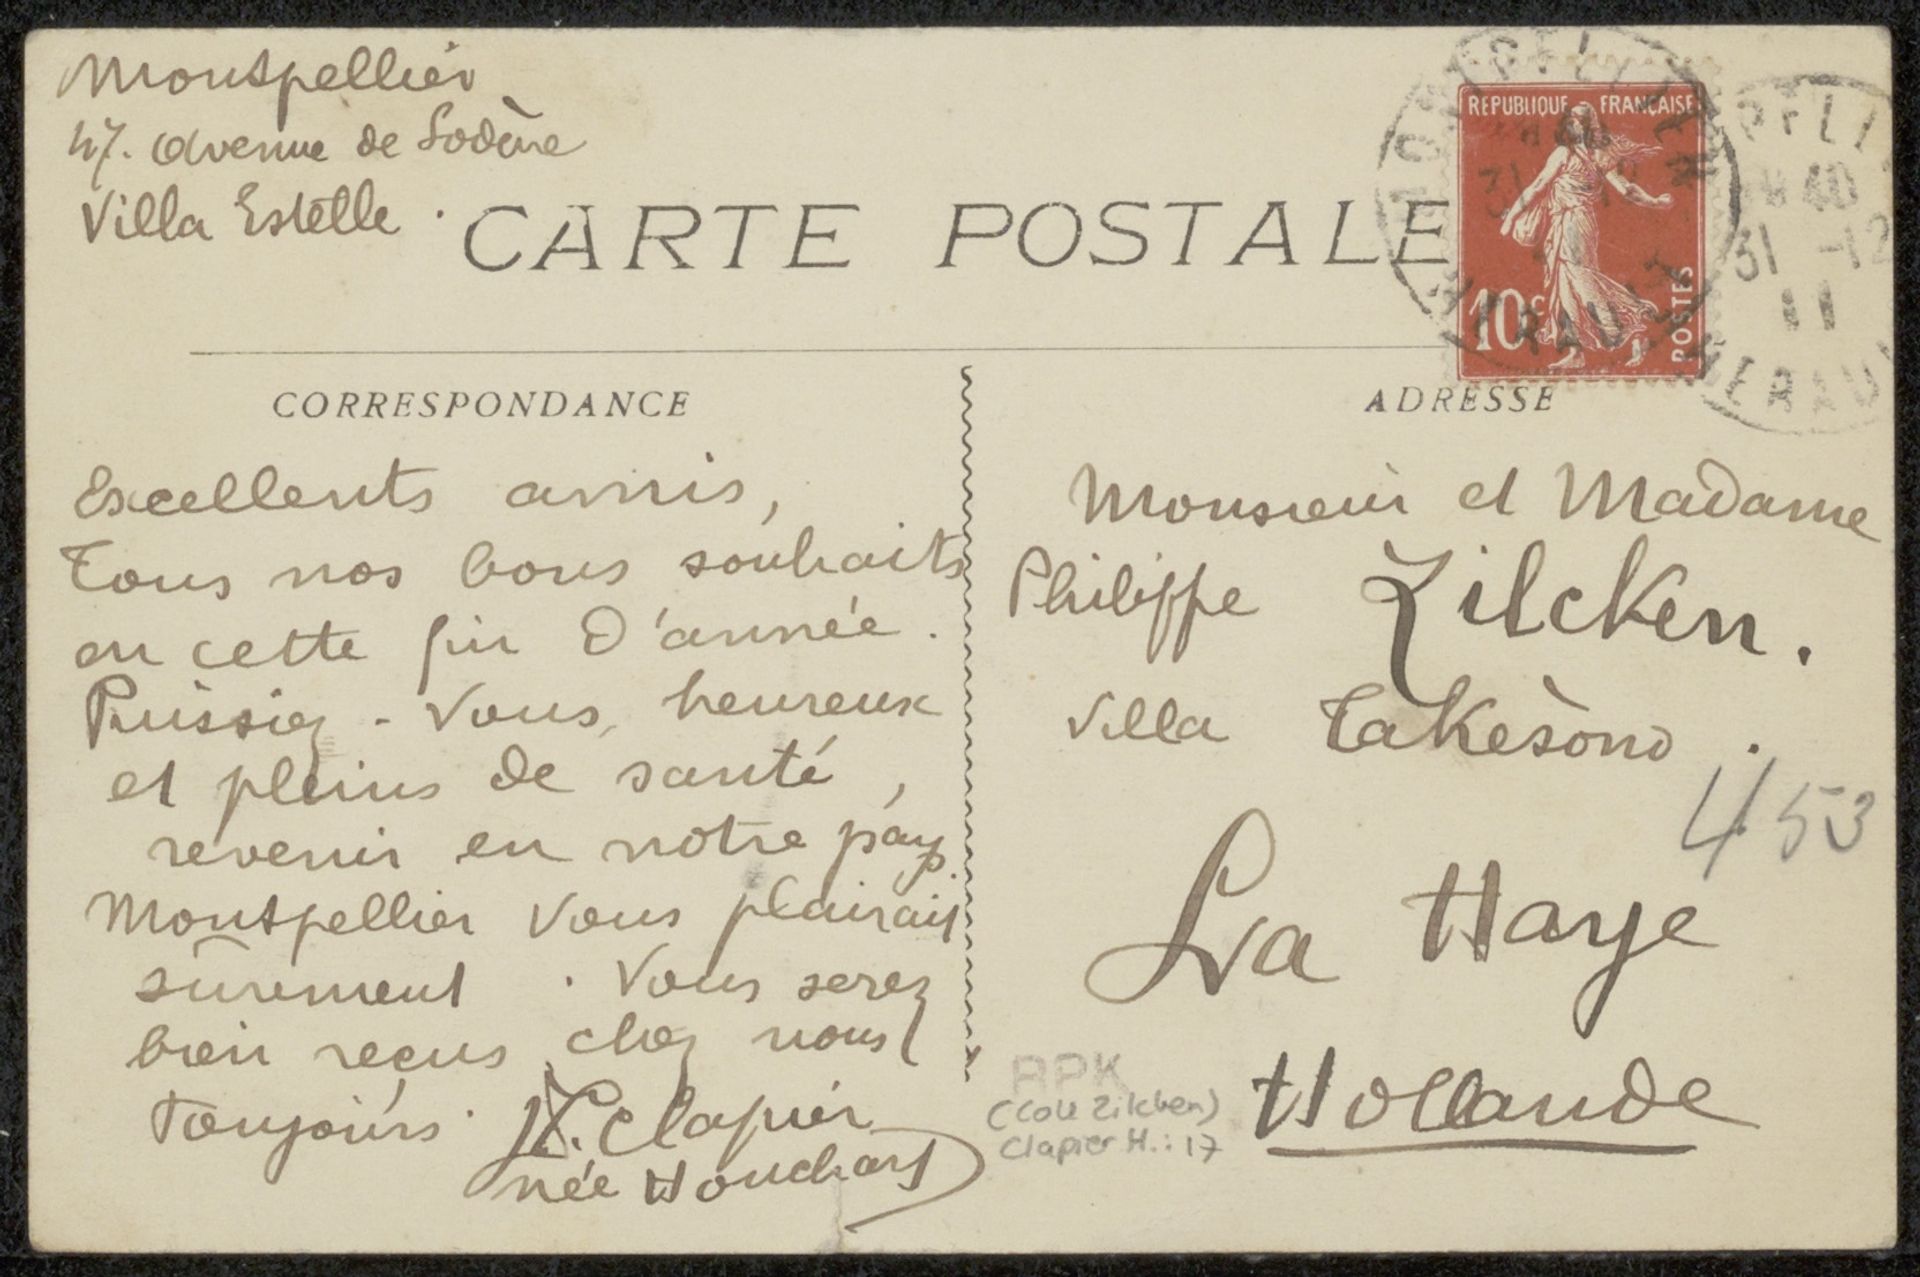 Montpellier
47. Avenue de Lodève
Villa Estelle.
CARTE POSTALE
REPUBLIQUE FRANÇAISE
10c
POSTES
MONTPELLIER
HERAULT
40
31 -12
11
CORRESPONDANCE
ADRESSE
Excellents amis,
Tous nos bons souhaits
en cette fin d'année.
Puissiez-vous, heureux
et pleins de santé,
revenir en notre pays.
Montpellier vous plairait
sûrement. Vous serez
bien reçus chez nous
toujours. H. Clapier
née Houchart
Monsieur et Madame
Philippe Zilcken.
Villa Takèsono.
453
La Haye
Hollande
RPK
(Coll Zilcken)
Clapier H.: 17